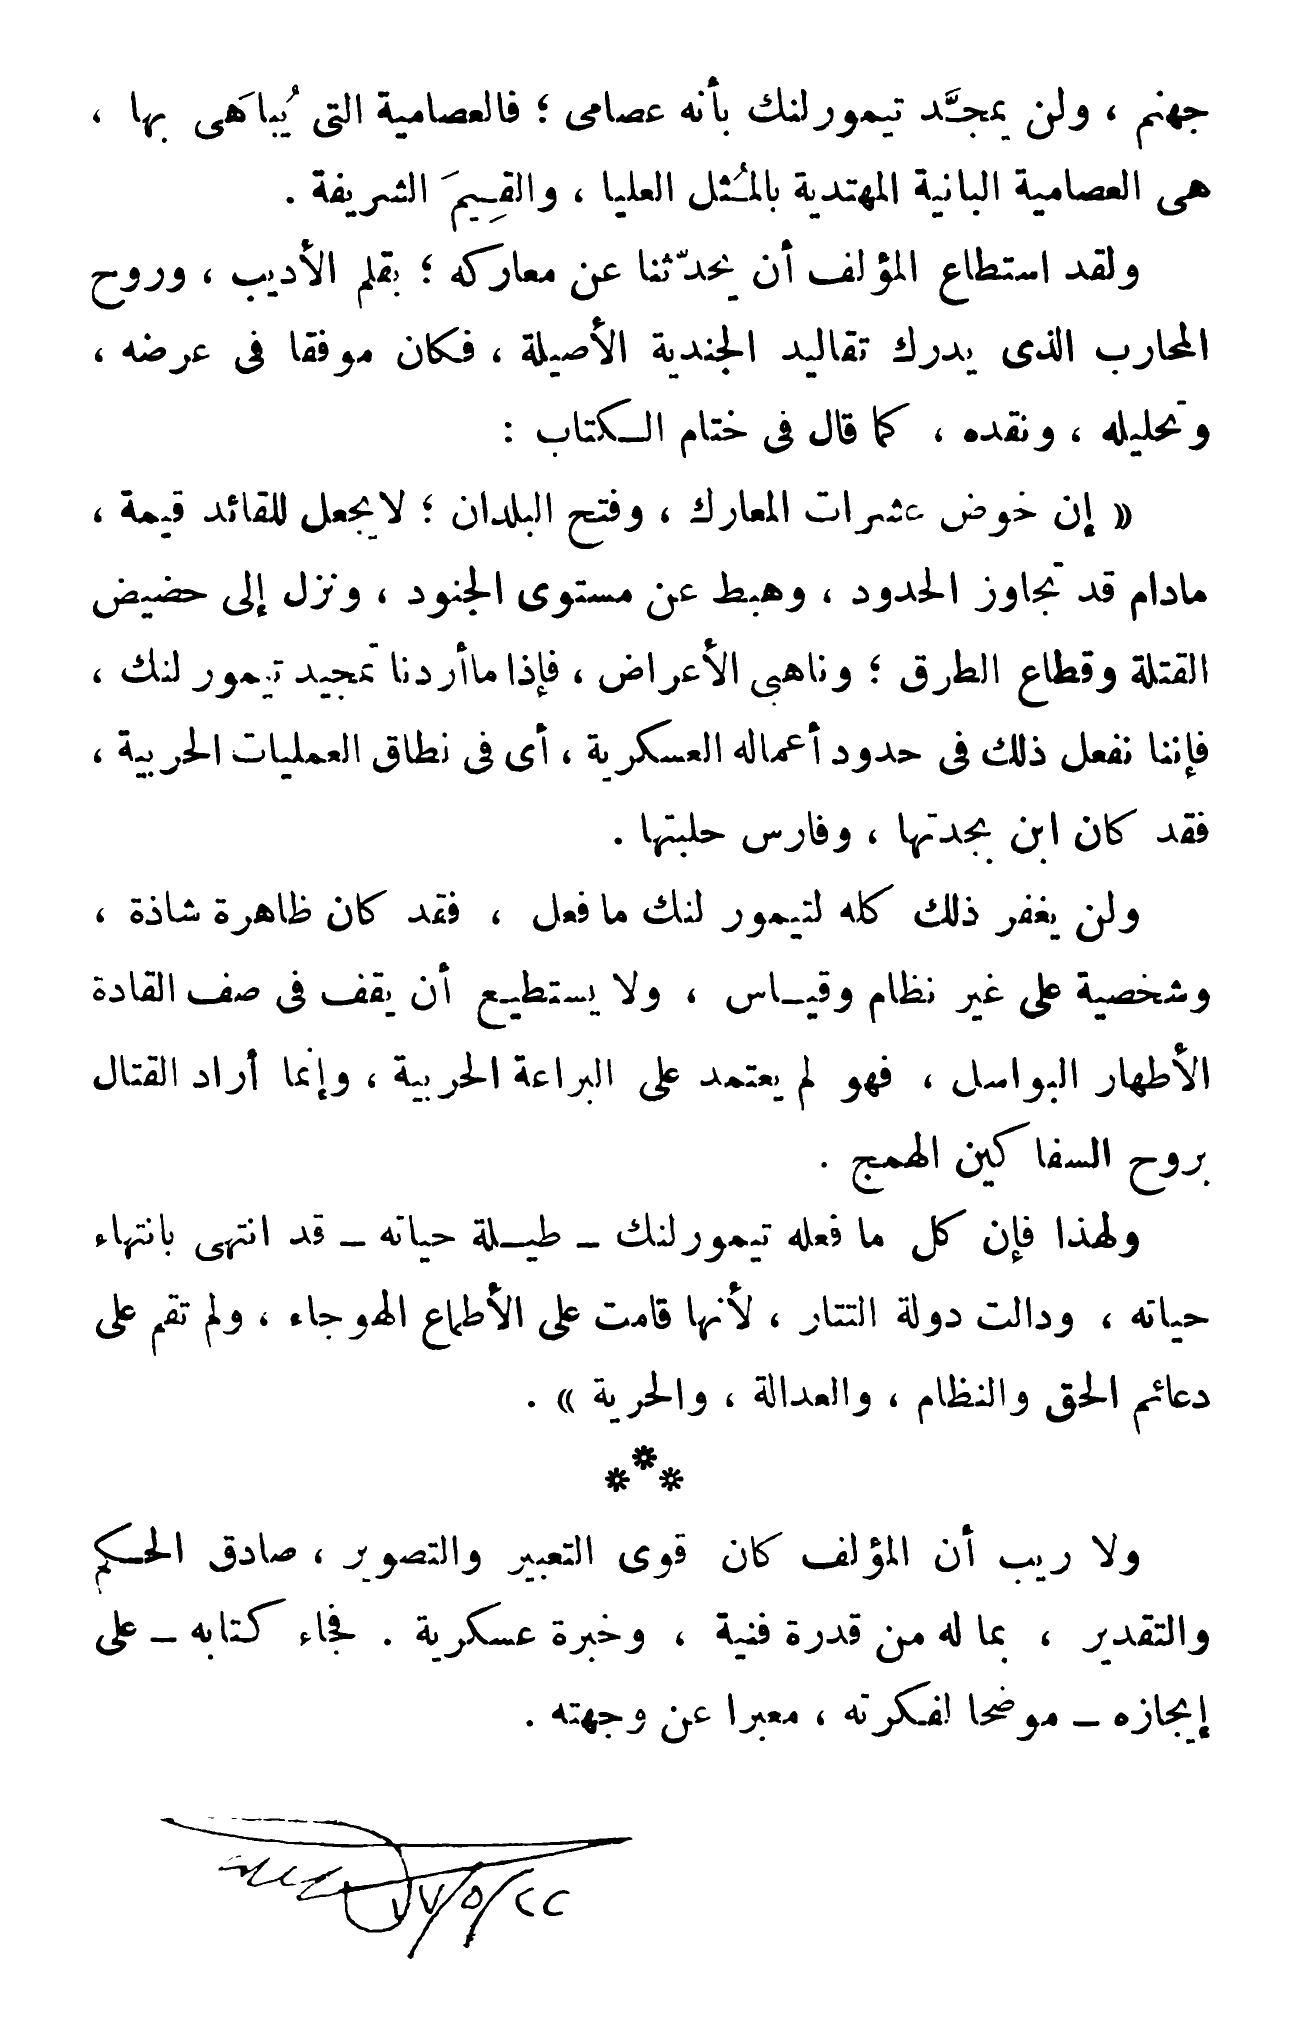 جهنم ، ولن يمجَّد تيمورلنك بأنه عصامى ؛ فالعصامية التى يُباهَى بها ،
هى العصامية البانية المهتدية بالمُثل العليا ، والقِيمَ الشريفة .
ولقد استطاع المؤلف أن يحدّثنا عن معاركه ؛ بقلم الأديب ، وروح
المحارب الذى يدرك تقاليد الجندية الأصيلة ، فكان موفقا فى عرضه ،
وتحليله ، ونقده ، كما قال فى ختام الكتاب :
« إن خوض عشرات المعارك ، وفتح البلدان ؛ لايجعل للقائد قيمة ،
مادام قد تجاوز الحدود ، وهبط عن مستوى الجنود ، ونزل إلى حضيض
القتلة وقطاع الطرق ؛ وناهبى الأعراض ، فإذا ماأردنا تمجيد تيمور لنك ،
فإننا نفعل ذلك فى حدود أعماله العسكرية ، أى فى نطاق العمليات الحربية ،
فقد كان ابن بجدتها ، وفارس حلبتها .
ولن يغفر ذلك كله لتيمور لنك ما فعل ، فقد كان ظاهرة شاذة ،
وشخصية على غير نظام وقيـاس ، ولا يستطيـع أن يقف فى صف القادة
الأطهار البواسل ، فهو لم يعتمد على البراعة الحربية ، وإنما أراد القتال
بروح السفاكين الهمج .
ولهذا فإن كل ما فعله تيمورلنك ـ طيـلة حياته ـ قد انتهى بانتهاء
حياته ، ودالت دولة التتار ، لأنها قامت على الأطماع الهوجاء ، ولم تقم على
دعائم الحق والنظام ، والعدالة ، والحرية » .
***
ولا ريب أن المؤلف كان قوى التعبير والتصوير ، صادق الحـكم
والتقدير ، بما له من قدرة فنية ، وخبرة عسكرية . فجاء كتابه ـ على
إيجازه ـ موضحا لفكرته ، معبرا عن وجهته .
٢٢/٥/٧٧